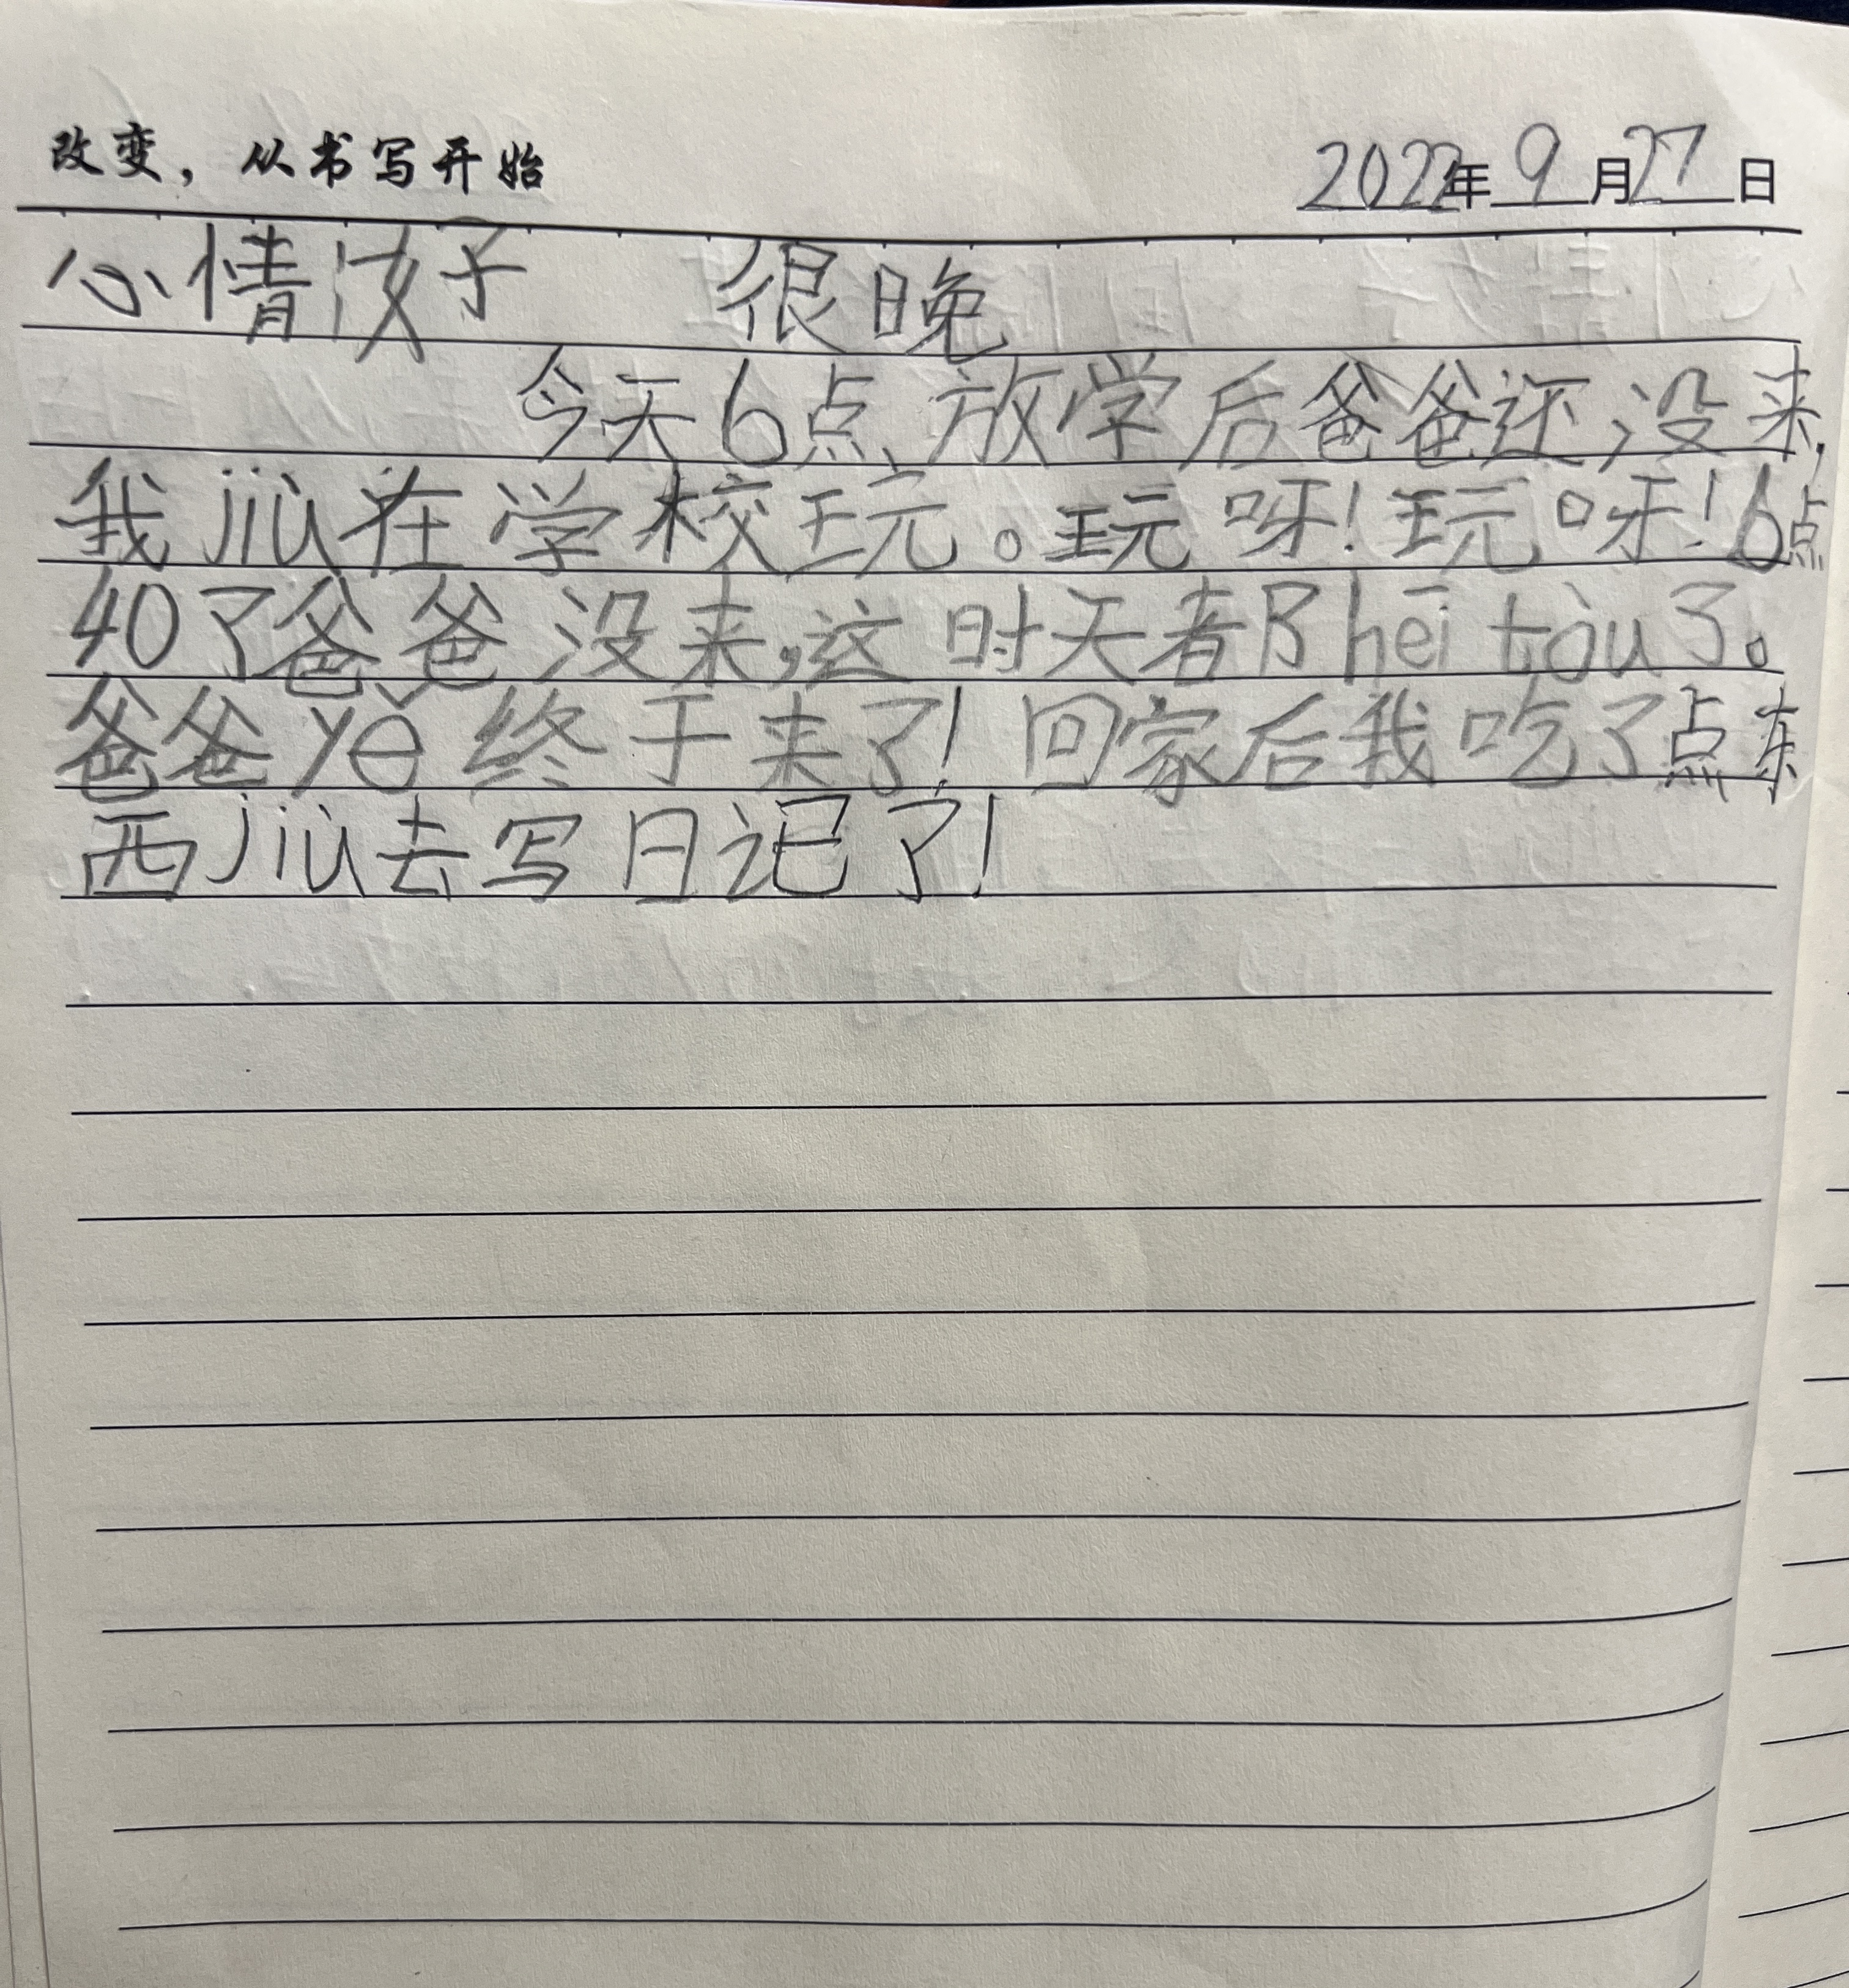 改变，从书写开始
2022年9月27日
心情好 很晚
今天6点放学后爸爸还没来,
我jiù在学校玩。玩呀!玩呀!6点
40了爸爸没来,这时天都hēi tòu了。
爸爸yě终于来了!回家后我吃了点东
西jiù去写日记了!